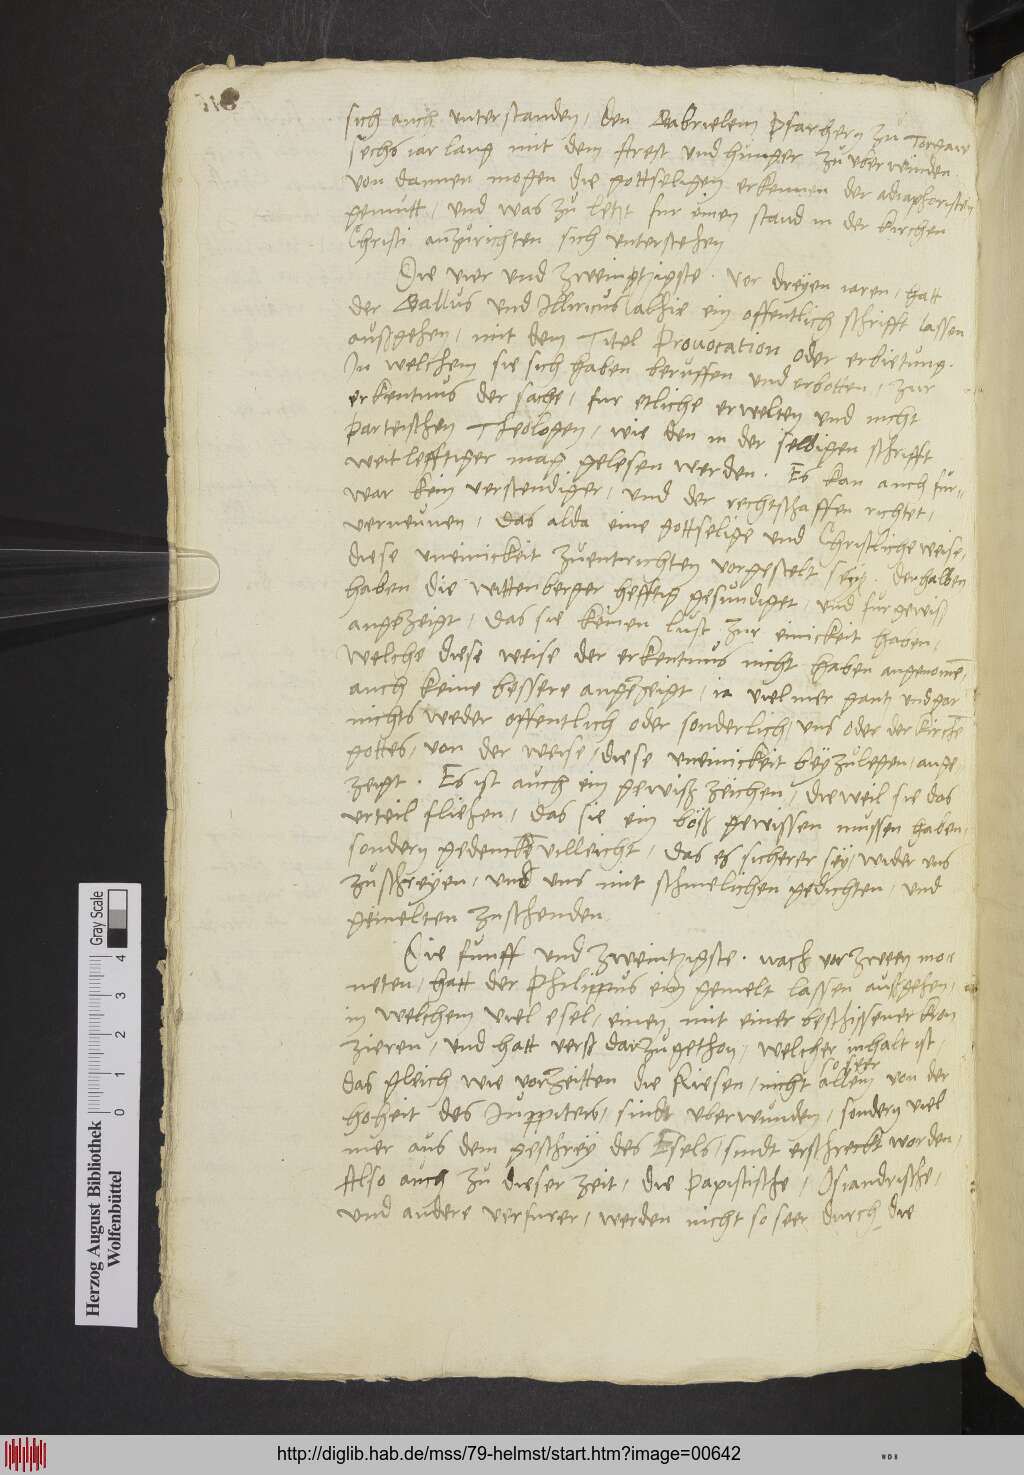 sich auch unterstanden, den Gabrielem Pfarhern zu Torgaw
sechs iar lang mit dem Arest und hunger zu uberwinden.
von dannen mogen die gottseligen erkennen der adiaphoristen
gemutt, und was zu letzt fur einen stand in der kirchen
Christi anzurichten sich unterstehen
Die vier und zweintzigste. vor dreyen iaren, hatt
der Gallus und Illiricus alhie ein offentlich schrifft lassen
außgehen, mit dem Titel Provocation oder erbietung.
In welchem sie sich haben beruffen und erbotten, zur
erkentnus der sache, fur etliche erwelten und nicht
parteischen Theologen, wie den in der selbigen schrifft
weitlefftiger mag gelesen werden. Es kan auch fur=
war kein verstendiger, und der rechtschaffen richtet,
verneinen, das alda eine gottselige und Christliche weise,
diese uneinickeit zuentrichten vorgestelt sey. derhalben
haben die Wittenberger hefftig gesundiget, und fur gewiß
angezeigt, das sie keinen lust zur einickeit haben,
welche diese weise der erkentnus nicht haben angenomē,
auch keine bessere angezeigt, ia viel mer gantz und gar
nichts weder offentlich oder sonderlich, uns oder der kirchē
gottes, von der weise, diese uneinickeit beyzulegen, ange
zeigt. Es ist auch ein gewiß zeichen, die weil sie das
urteil fliehen, das sie ein böß gewissen mussen haben,
sondern gedencken villeicht, das es sicherer sey, wider uns
zuschreyen, und uns mit schmelichen gedichten, und
gemelten zuschenden.
Die funff und zweintzigste. nach vor zween mo=
neten, hatt der Philippus ein gemelt lassen außgehen,
in welchem viel esel, einen mit einer beschissener kron
zieren, und hatt verß darzu gethon, welcher inhalt ist,
so seer
das gleich wie vorzeitten die Riesen, nicht allein von der
hoheit des Juppiters, sindt uberwunden, sondern viel
mer aus dem geschrey des Esels, sindt erschreckt worden,
Also auch zu dieser zeit, die Papistische, Osiandrische,
und andere verfurer, werden nicht so seer durch die
Gray Scale
0 1 2 3 4
Herzog August Bibliothek
Wolfenbüttel
http://diglib.hab.de/mss/79-helmst/start.htm?image=00642